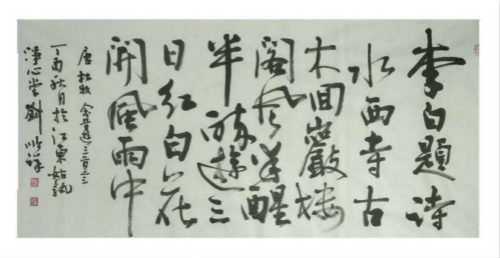 李白題詩
水西寺古
木回巖樓
閣風半醒
半醉遊三
日紅白花
開風雨中
唐杜牧念昔遊三首之三
丁酉秋月於江東姑孰
心堂劉